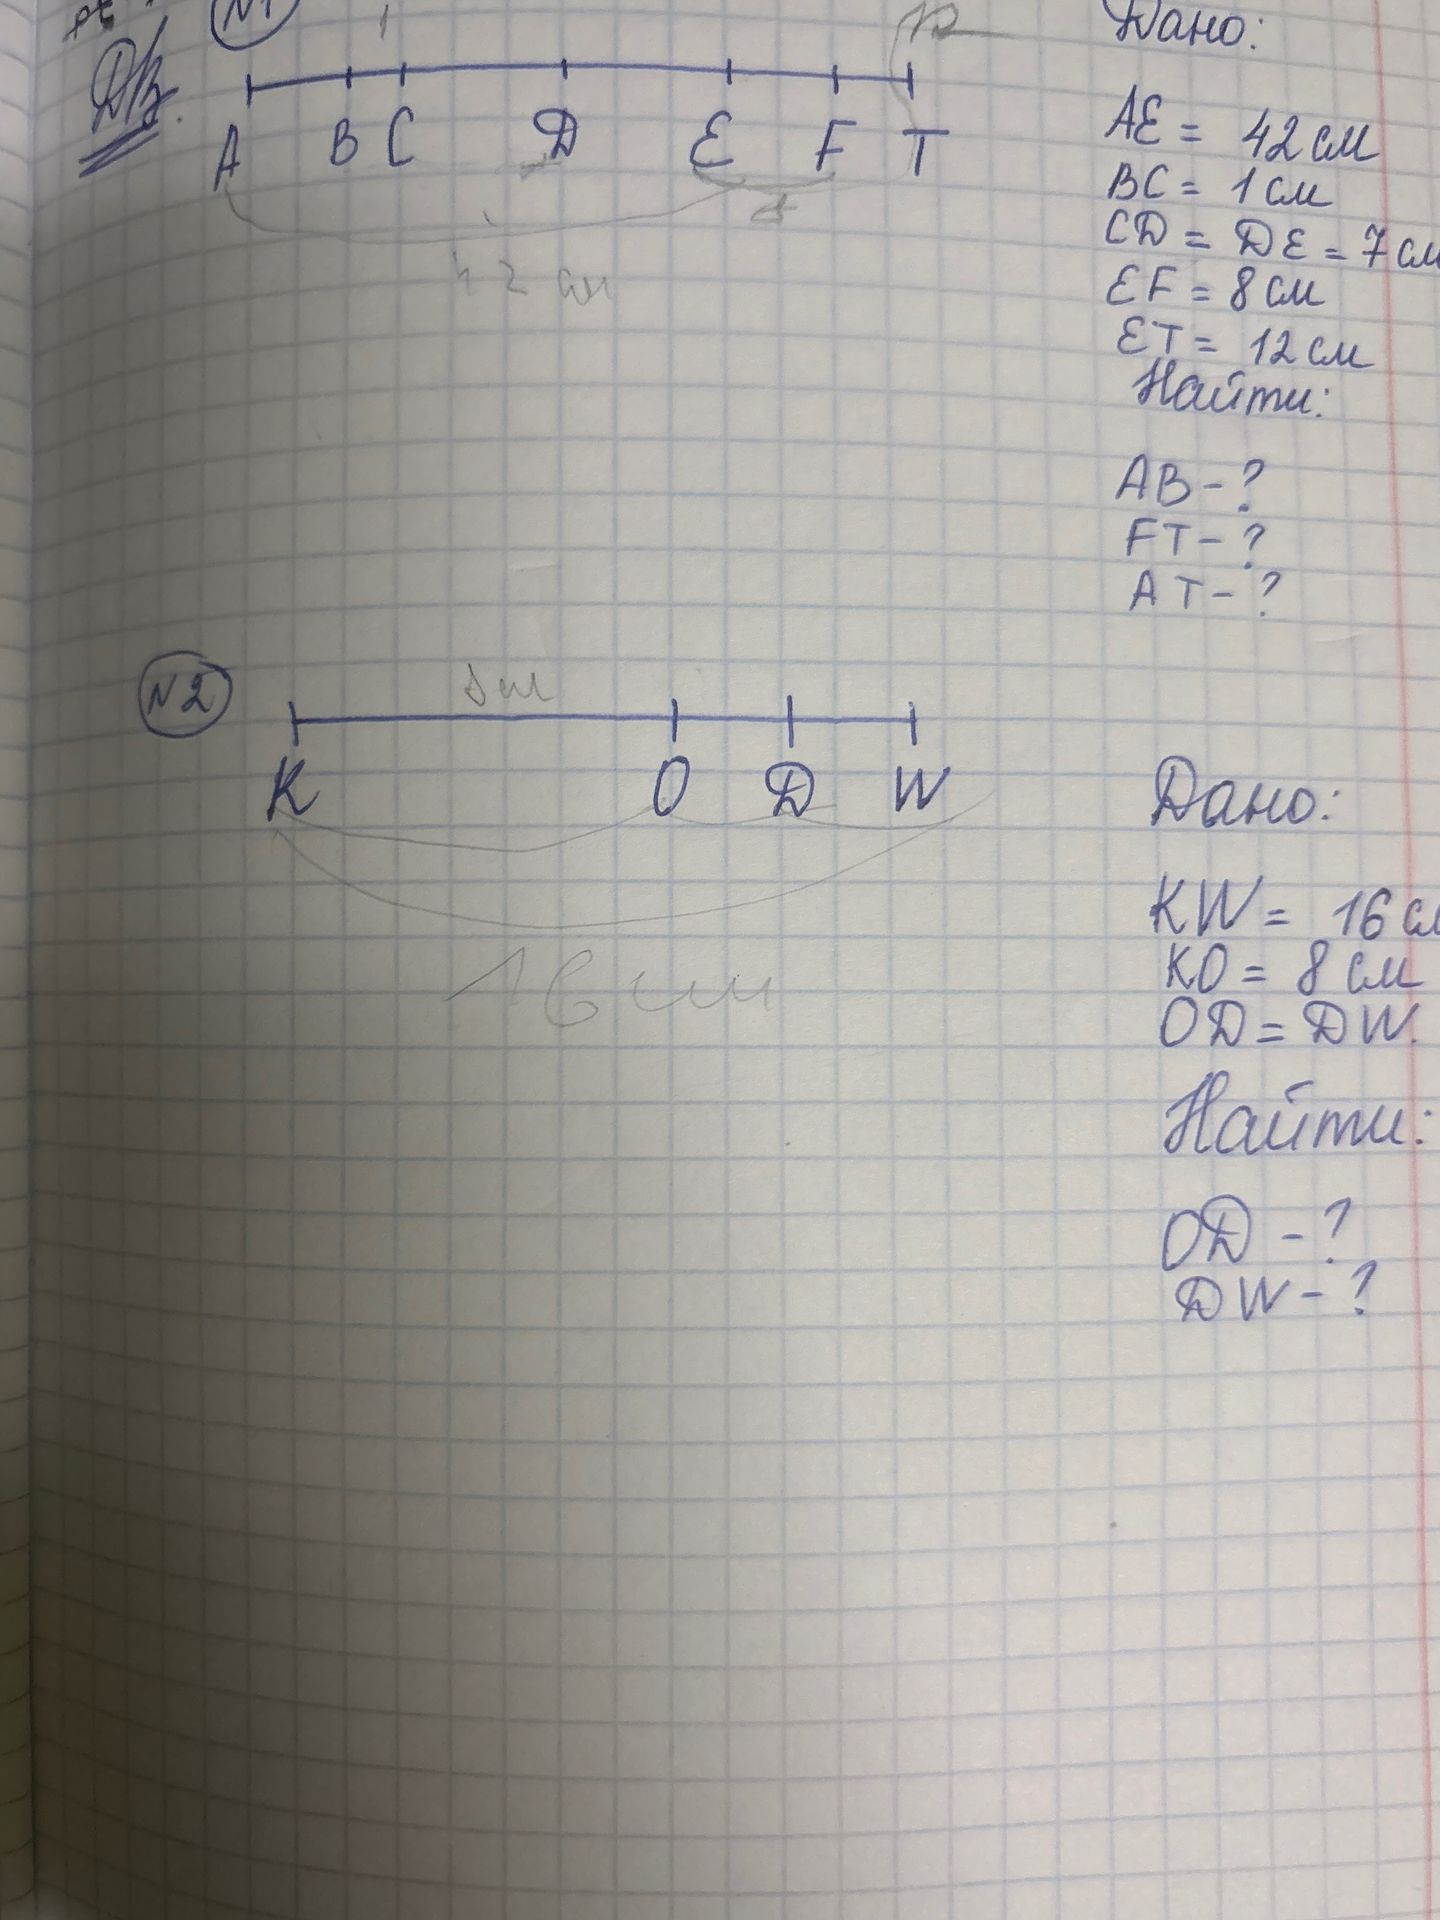 N1
Дано:
Д/з.
A B C D E F T
42 см
AE = 42 см
BC = 1 см
CD = DE = 7 см
EF = 8 см
ET = 12 см
Найти:
AB - ?
FT - ?
AT - ?
N2
8 см
K O D W
16 см
Дано:
KW = 16 см
KO = 8 см
OD = DW.
Найти:
OD - ?
DW - ?